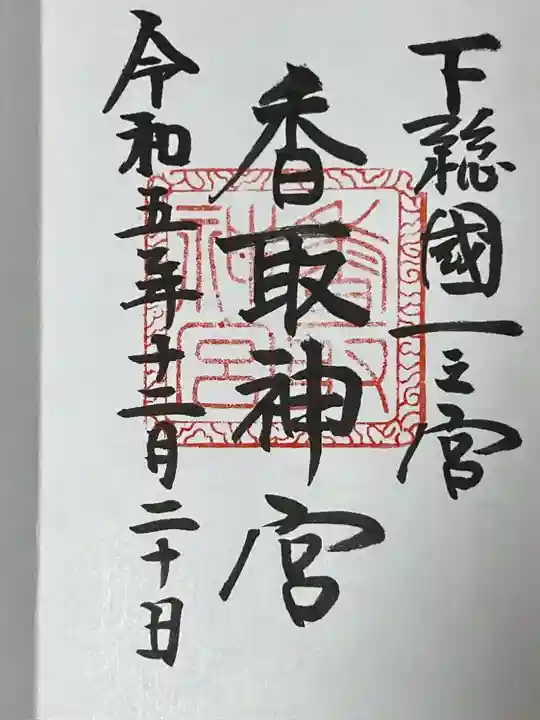 下総國一之宮
香取神宮
令和五年十二月二十日
香取神宮